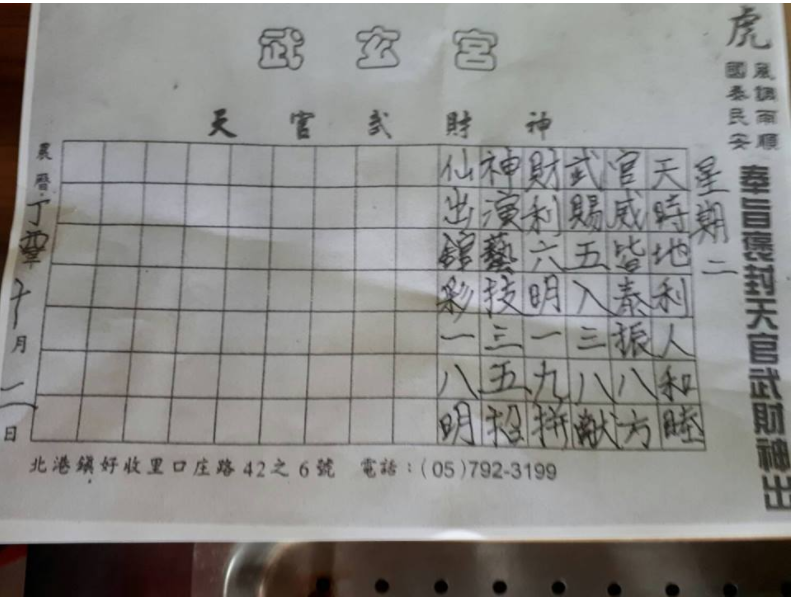 武玄宮
天官武財神
虎
風調雨順
國泰民安
奉旨褒封天官武財神出
星期二
天時地利人和睦
官威皆泰振八方
武賜五入三八獻
財利六明一九拼
神演藝技三五招
仙出館彩一八明
農曆丁十月二日
北港鎮好收里口庄路42之6號 電話：(05)792-3199